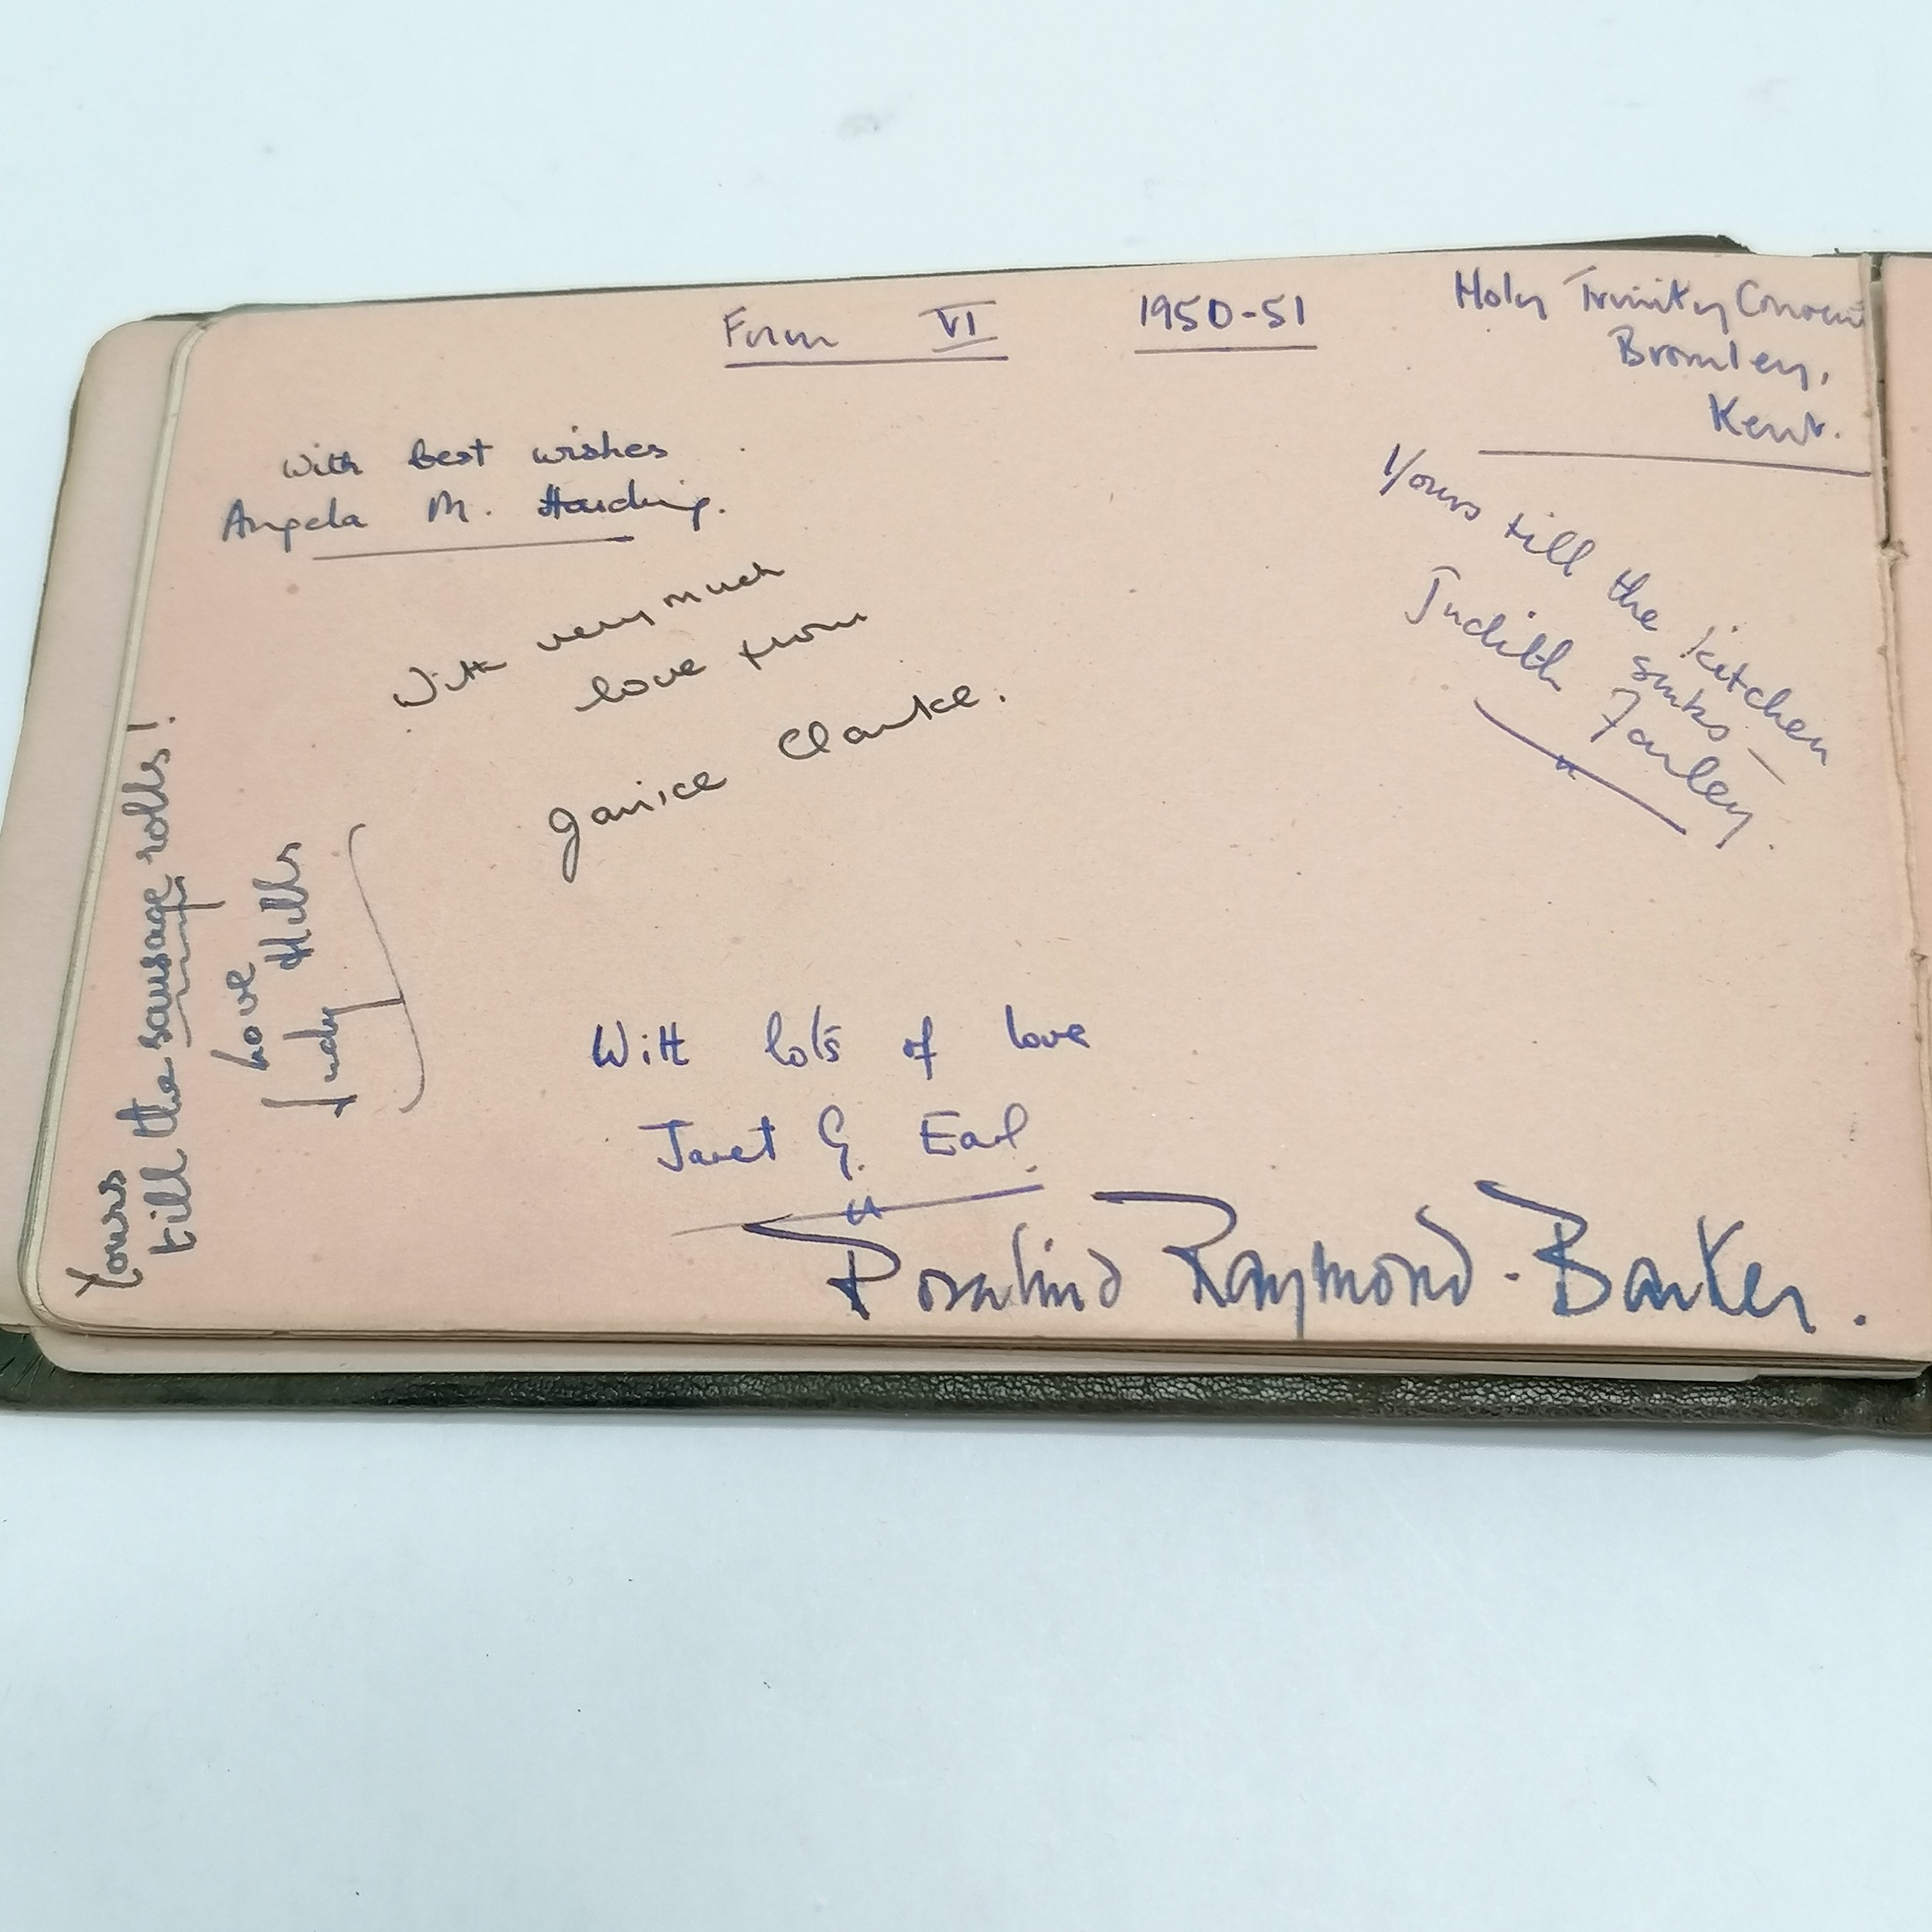 Form VI 1950-51
Holy Trinity Convent
Bromley,
Kent.
With best wishes
Angela M. Harding.
With very much
love from
Janice Clarke.
Yours till the kitchen
sinks —
Judith Farley.
Yours
till the sausage rolls!
Love
Judy Hills
With lots of love
Janet G. Earl.
Rosalind Raymond-Barker.